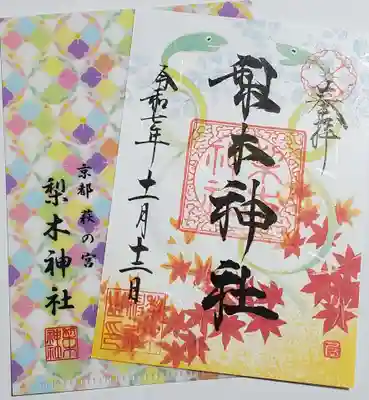 奉拝
梨木神社
令和七年
十一月十二日
京都 萩の宮
梨木神社